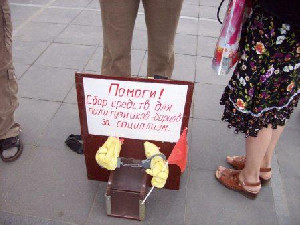 Помоги!
Сбор средств для
политузников борцов
за социализм.